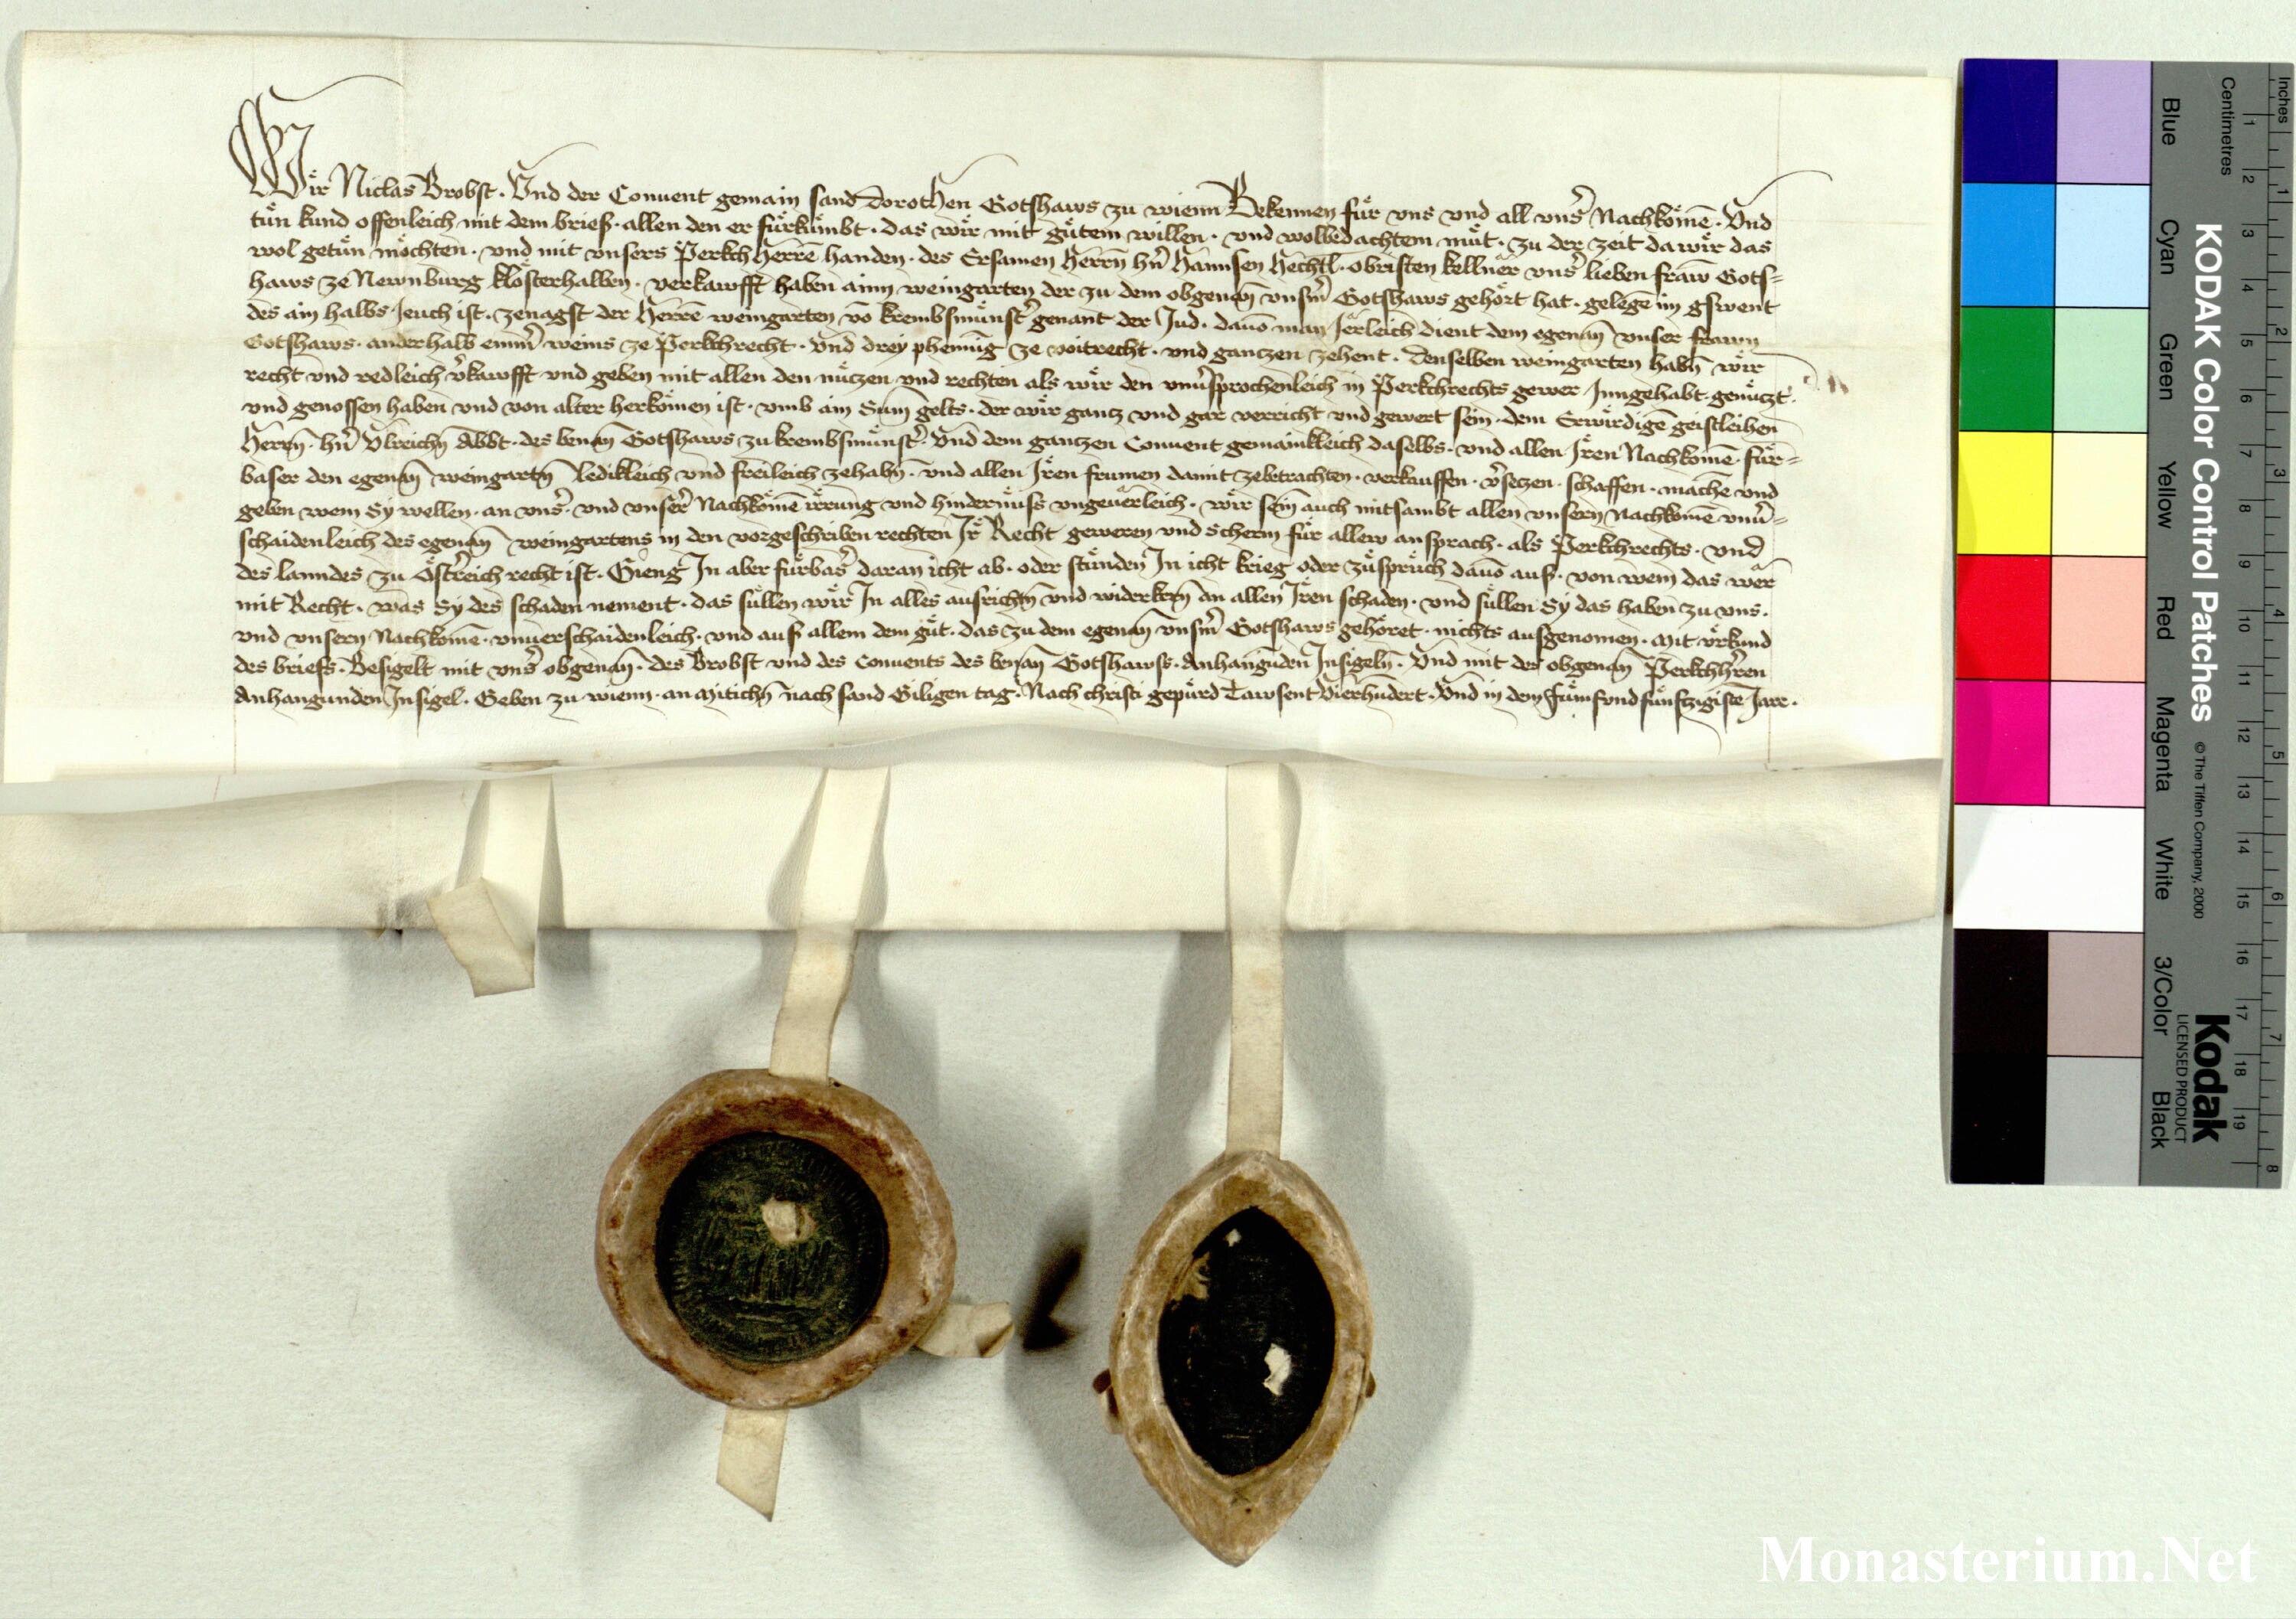 Wir Niclas Brobst. Vnd der Conuent gemain sand Dorothen Gotshaws zu wienn Bekennen für vns vnd all vnsˀ Nachkömē. Vnd
tün kund offenleich mit dem brieff. allen den er fürkümbt. das wir mit gütem willen. vnd wolbedachtem müt. zu der zeit da wir das
wol getün möchten. vnd mit vnsers Perkchherrē handen. des Ersamen herrn hn̄ hannsen hechtl. obristen kellner vnsˀ lieben fraw̄ Gots=
haws ze Newnburg klosterhalben. verkawfft haben ainn weingarten der zu dem obgenan̄ vnsm̄ Gotshaws gehört hat. gelegē im gswent
des ain halbs Jeuch ist. zenagst der herrē weingarten vō krembsmünstˀ genant der Jud. dauō man Jerleich dient dem egenan̄ vnser frawn
Gotshaws. anderhalb emm̄ weins ze Perkchrecht. vnd drey phenning ze voitrecht. vnd ganczen zehent. denselben weingarten habn̄ wir
recht vnd redleich vˀkawfft vnd geben mit allen den nüczen vnd rechten als wir den vnuˀsprochenleich in Perkchrechts gewer Inngehabt. genüczt.
vnd genossen haben vnd von alter herkömen ist. vmb ain Sum̄ gelts. der wir gancz vnd gar verricht vnd gewert sein. dem Erwirdigē geistleihen
herrn. hn̄ Vlreichn̄ Abbt. des benan̄ Gotshaws zu krembsmünstˀ. Vnd dem ganczen Conuent gemainkleich daselbs. vnd allen Jren Nachkomē. für=
baser den egenan̄ weingartn̄ ledikleich vnd freileich zehabn̄. vnd allen Jren frumen damit zebetrachten. verkauffen. vˀseczen. schaffen. machē vnd
geben wem Sy wellen. an vnsˀ. vnd vnserˀ Nachkömē irrung vnd hindernüss vngeuerleich. wir sein auch mitsambt allen vnsern Nachkomē vnuˀ=
schaidenleich des egenan̄ weingartens in den vorgeschriben rechten Jr Recht geweren vnd scherm für allew ansprach. als Perkchrechts. vnd
des lanndes zu Österreich recht ist. Gieng In aber fürbasˀ daran icht ab. oder stünden In icht krieg oder züsprüch dauō auff. von wem das wer
mit Recht. was Sy des schaden nement. das süllen wir In alles ausrichtn̄ vnd widerkern̄ an allen Jren schaden. vnd süllen Sy das haben zu vns.
vnd vnsern Nachkomē. vnuerschaidenleich. vnd auff allem dem güt. das zu dem egenan̄ vnsm̄ Gotshaws gehöret. nichts ausgenomen. Mit vrkund
des briefs. Besigelt mit vnsˀ obgenan̄. des Brobst vnd des Conuents des benan̄ Gotshawss. Anhangunden Insigeln̄. Vnd mit des obgenan̄ Perkchhˀren
Anhangunden Insigel. Geben zu wienn. an Mitichn̄ nach sand Giligen tag. Nach christi gepürd Tawsent Vierhundert. Vnd in dem fümfvndfünfczigistē Jare.
Inches
Centimetres
1 2 3 4 5 6 7 8
1 2 3 4 5 6 7 8 9 10 11 12 13 14 15 16 17 18 19
KODAK Color Control Patches
© The Tiffen Company, 2000
Kodak
LICENSED PRODUCT
Blue
Cyan
Green
Yellow
Red
Magenta
White
3/Color
Black
Monasterium.Net